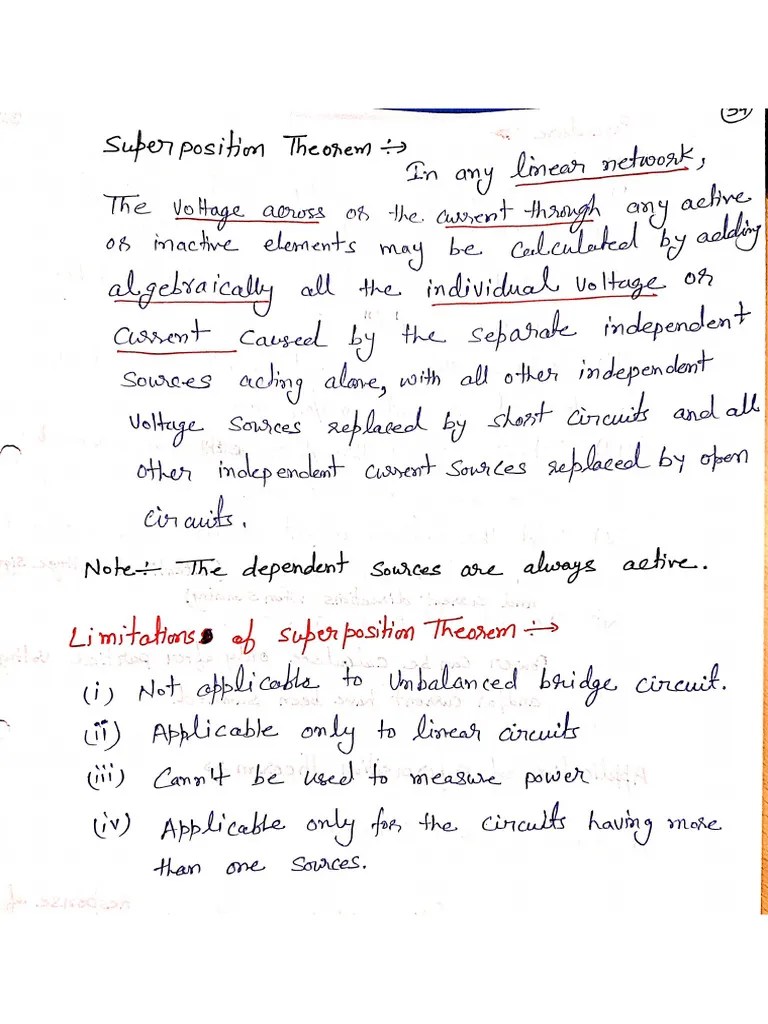 Superposition Theorem :→
In any linear network,
The voltage across or the current through any active
or inactive elements may be calculated by adding
algebraically all the individual voltage or
current caused by the separate independent
sources acting alone, with all other independent
voltage sources replaced by short circuits and all
other independent current sources replaced by open
circuits.
Note:- The dependent sources are always active.
Limitations of Superposition Theorem :→
(i) Not applicable to Unbalanced bridge circuit.
(ii) Applicable only to linear circuits
(iii) Cann't be used to measure power
(iv) Applicable only for the circuits having more
than one sources.